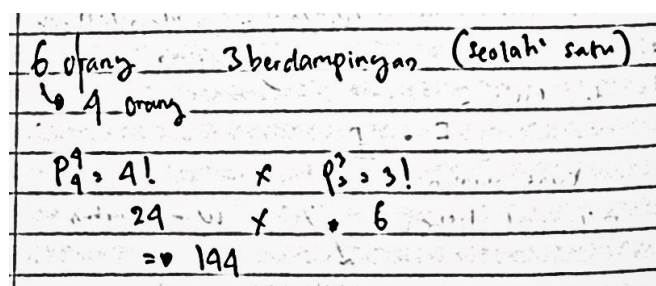 6 orang 3 berdampingan (seolah² satu)
↳ 4 orang
P⁴₄ = 4! × P³₃ = 3!
24 × • 6
=• 144